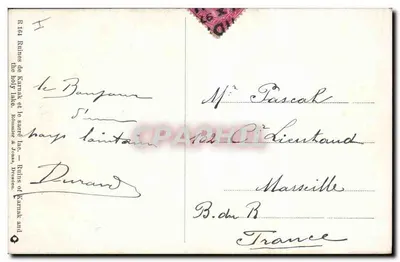 R 164 Ruines de Karnak et le sacré lac. — Ruins of Karnak and
the holy lake. Römmler & Jonas, Dresden.
Le Bonjour
d'un
pays lointain
Durand
Mr Pascal
Lieutaud
Marseille
B. du R
France